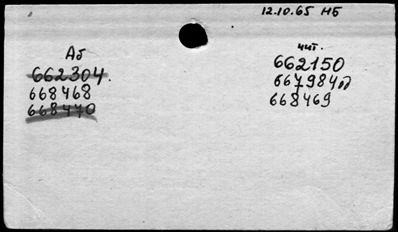 12.10.65 НБ
Аб
662304.
668468
668470
чит.
662150
667984
668469